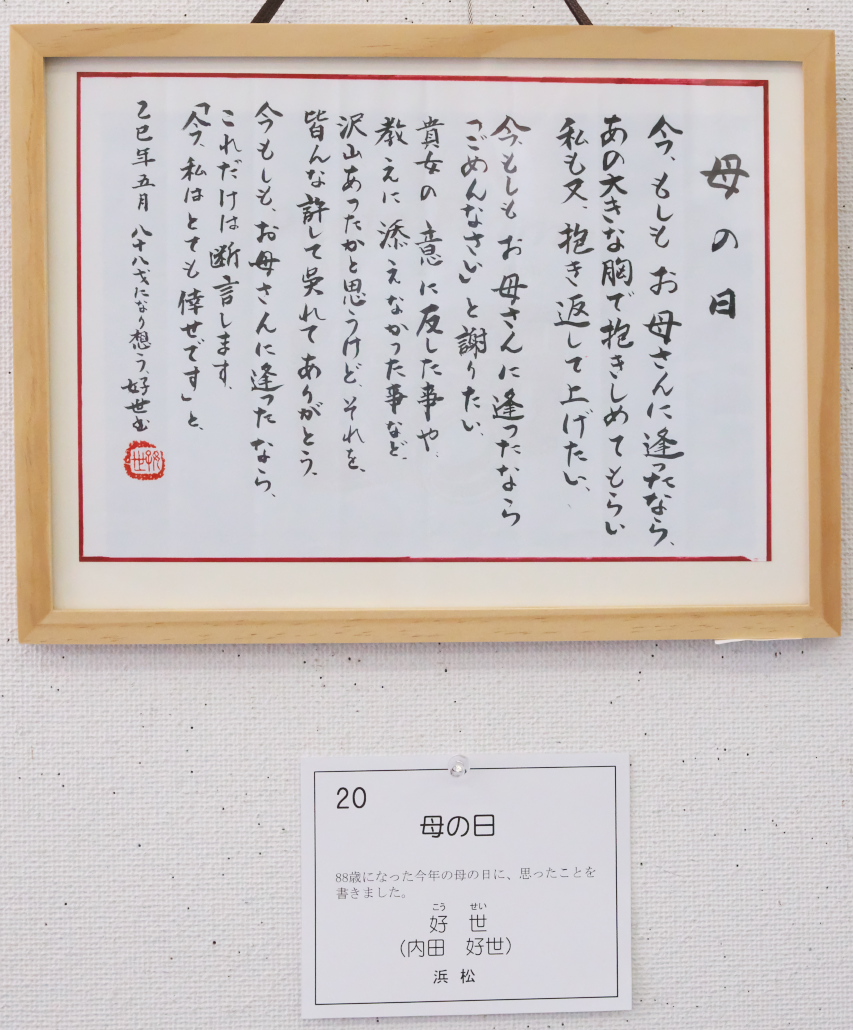 母の日
今、もしも お母さんに逢ったなら、
あの大きな胸で抱きしめてもらい
私も又、抱き返して上げたい、
今、もしも お母さんに逢ったなら
「ごめんなさい」と謝りたい、
貴女の 意に反した事や、
教えに添えなかった事など、
沢山あったかと思うけど、それを、
皆んな許して呉れて ありがとう、
今もしも、お母さんに逢ったなら、
これだけは断言します、
「今、私はとても倖せです」と、
乙巳年五月 八十八才になり想う、好世書
好世
20
母の日
88歳になった今年の母の日に、思ったことを
書きました。
こう せい
好 世
(内田 好世)
浜 松